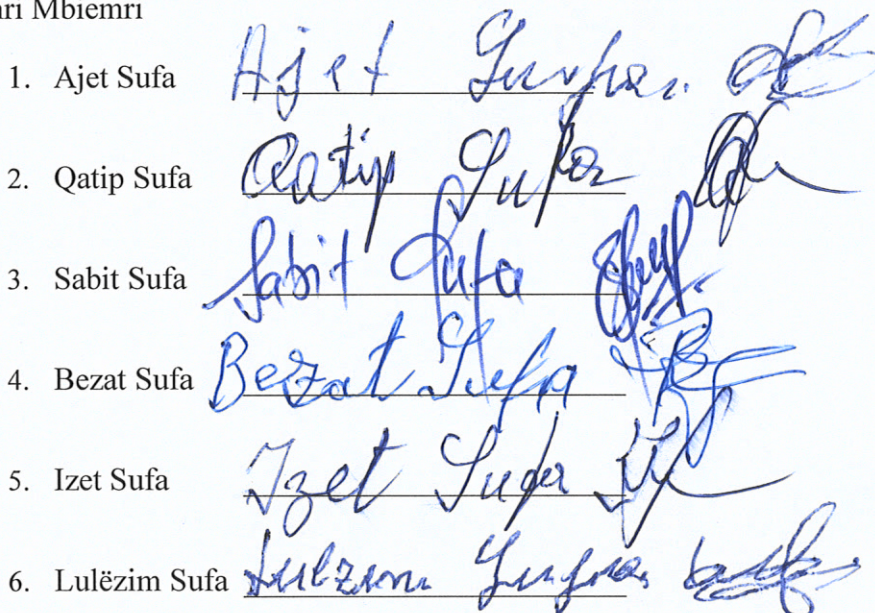 ari Mbiemri
1. Ajet Sufa Ajet Sufa
2. Qatip Sufa Qatip Sufa
3. Sabit Sufa Sabit Sufa
4. Bezat Sufa Bezat Sufa
5. Izet Sufa Izet Sufa
6. Lulëzim Sufa Lulzim Sufa